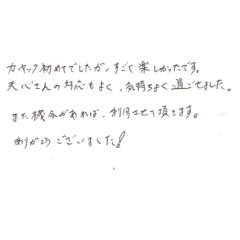 カヤック初めてでしたが、すごく楽しかったです。
天心さんの対応もよく、気持ちよく過ごせました。
また機会があれば、利用させて頂きます。
ありがとうございました!